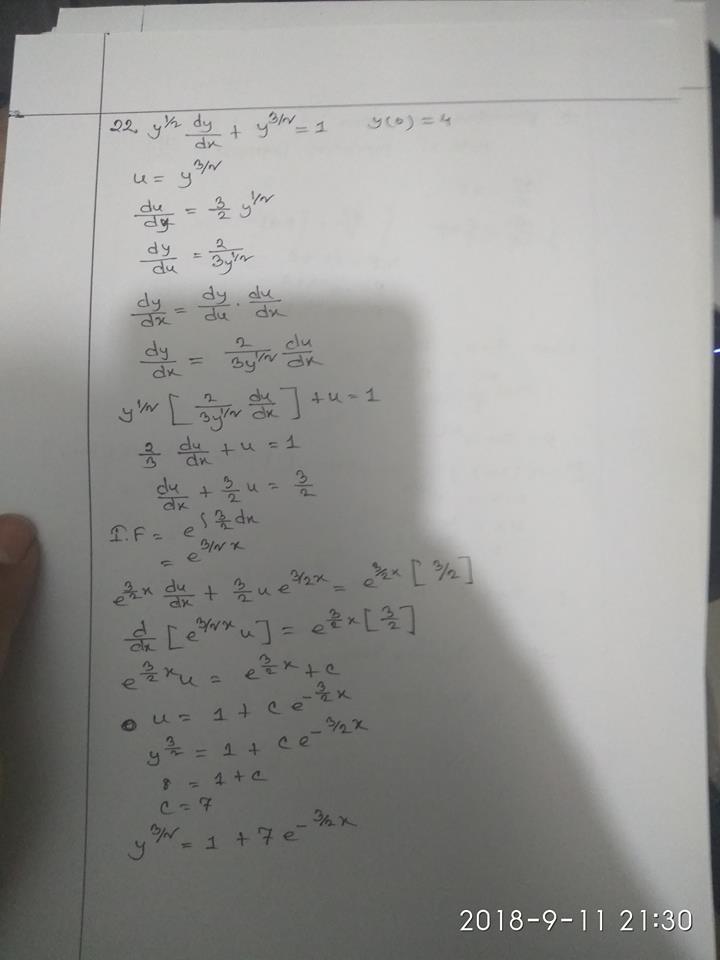 22. y^1/2 dy/dx + y^3/2 = 1 y(0) = 4
u = y^3/2
du/dy = 3/2 y^1/2
dy/du = 2/3y^1/2
dy/dx = dy/du · du/dx
dy/dx = 2/3y^1/2 du/dx
y^1/2 [ 2/3y^1/2 du/dx ] + u = 1
2/3 du/dx + u = 1
du/dx + 3/2 u = 3/2
I.F = e^∫ 3/2 dx
= e^3/2 x
e^3/2 x du/dx + 3/2 u e^3/2 x = e^3/2 x [ 3/2 ]
d/dx [ e^3/2 x u ] = e^3/2 x [ 3/2 ]
e^3/2 x u = e^3/2 x + c
u = 1 + c e^-3/2 x
y^3/2 = 1 + c e^-3/2 x
8 = 1 + c
c = 7
y^3/2 = 1 + 7 e^-3/2 x
2018-9-11 21:30